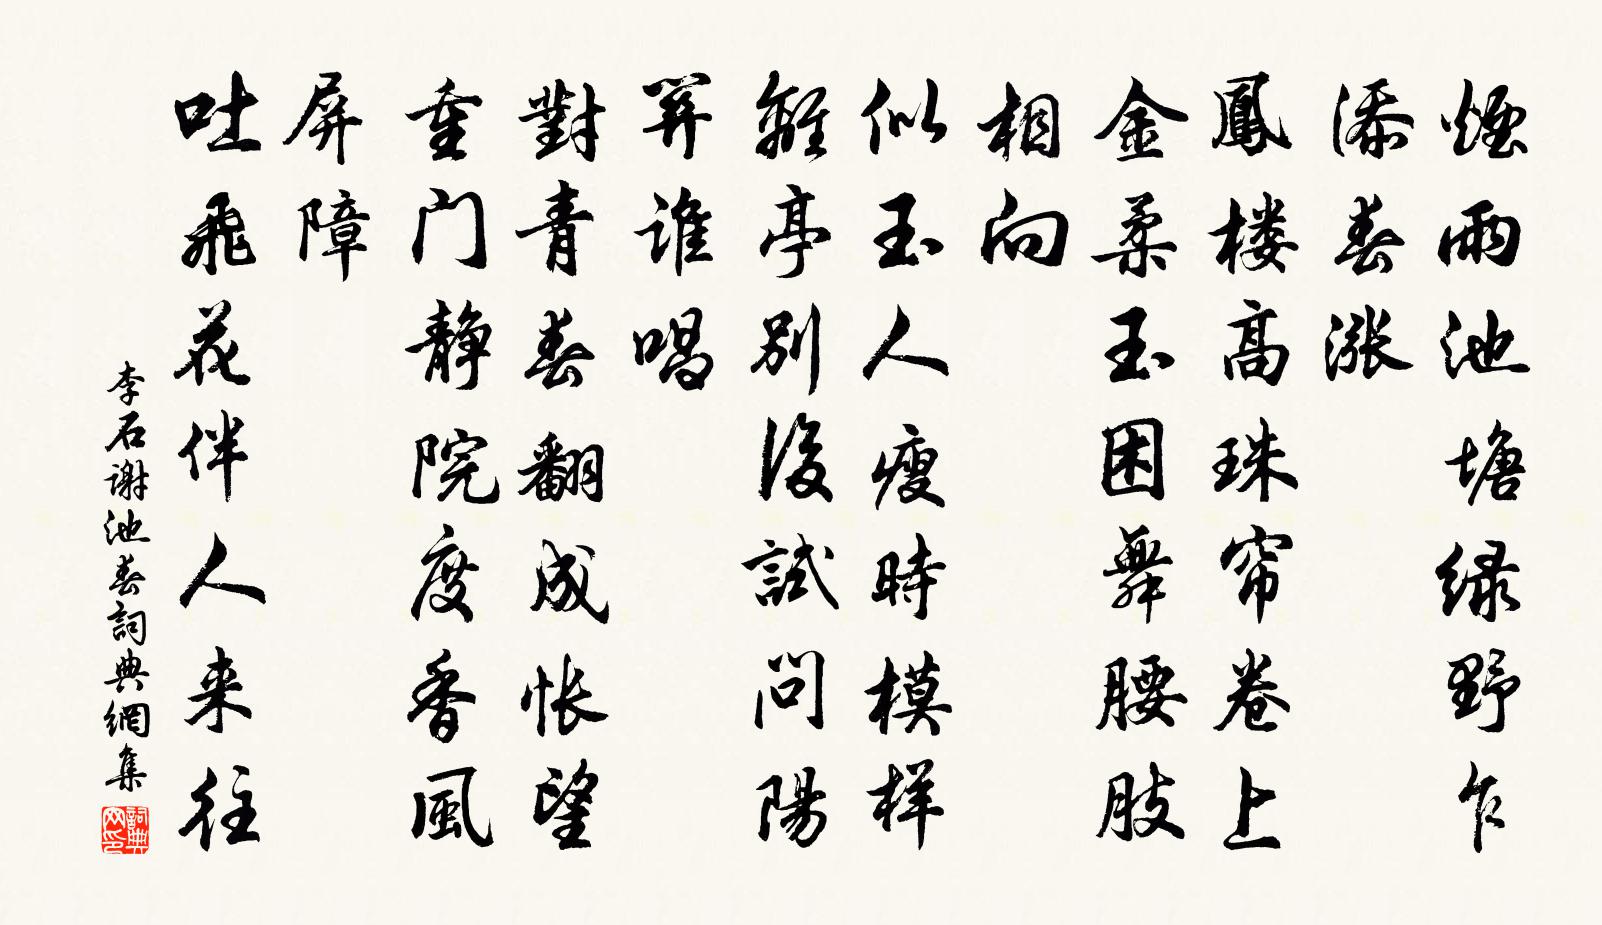 煙雨池塘绿野乍
添春漲
鳳楼高珠帘卷上
金柔玉困舞腰肢
相向
似玉人瘦時模样
離亭别後試問陽
関谁唱
對青春翻成怅望
重门静院度香風
屏障
吐飛花伴人来往
李石謝池春詞典網集
詞典网印